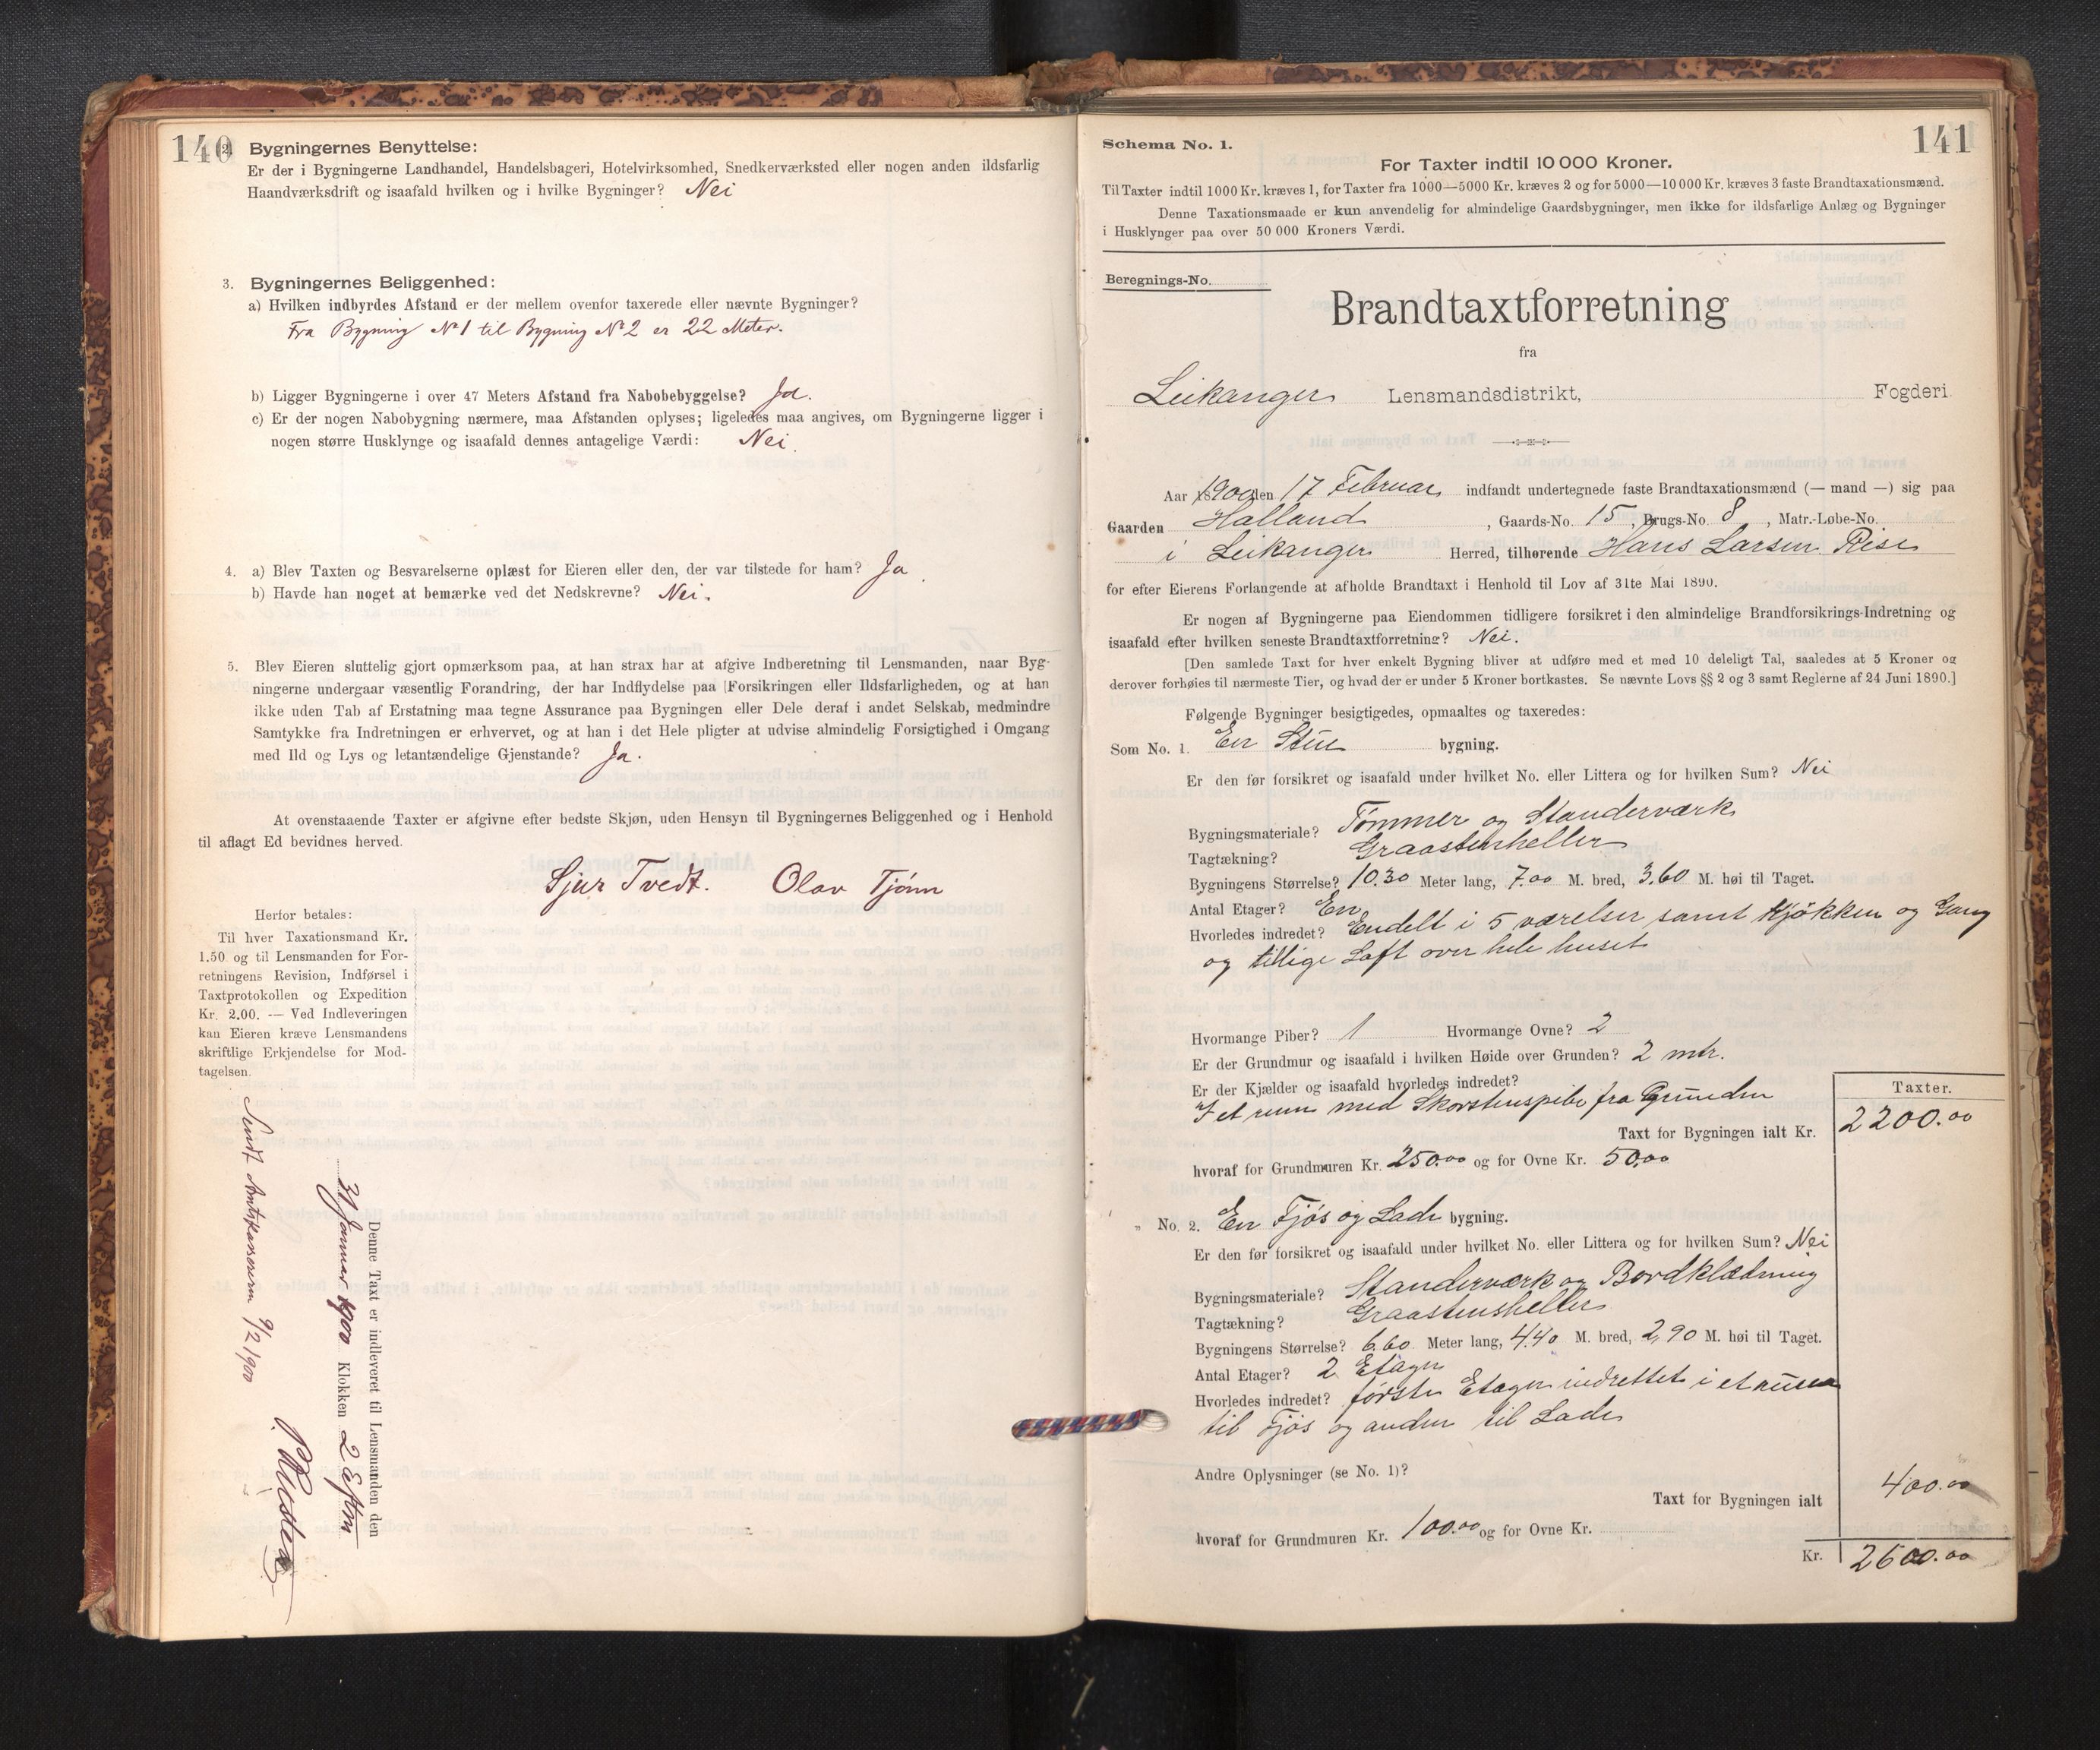 140
2. Bygningernes Benyttelse:
Er der i Bygningerne Landhandel, Handelsbageri, Hotelvirksomhed, Snedkerværksted eller nogen anden ildsfarlig
Haandværksdrift og isaafald hvilken og i hvilke Bygninger? Nei
3. Bygningernes Beliggenhed:
a) Hvilken indbyrdes Afstand er der mellem ovenfor taxerede eller nævnte Bygninger?
Fra Bygning No 1 til Bygning No 2 er 22 Meter.
b) Ligger Bygningerne i over 47 Meters Afstand fra Nabobebyggelse? Ja.
c) Er der nogen Nabobygning nærmere, maa Afstanden oplyses; ligeledes maa angives, om Bygningerne ligger i
nogen større Husklynge og isaafald dennes antagelige Værdi: Nei.
4. a) Blev Taxten og Besvarelserne oplæst for Eieren eller den, der var tilstede for ham? Ja.
b) Havde han noget at bemærke ved det Nedskrevne? Nei.
5. Blev Eieren sluttelig gjort opmærksom paa, at han strax har at afgive Indberetning til Lensmanden, naar Byg-
ningerne undergaar væsentlig Forandring, der har Indflydelse paa Forsikringen eller Ildsfarligheden, og at han
ikke uden Tab af Erstatning maa tegne Assurance paa Bygningen eller Dele deraf i andet Selskab, medmindre
Samtykke fra Indretningen er erhvervet, og at han i det Hele pligter at udvise almindelig Forsigtighed i Omgang
med Ild og Lys og letantændelige Gjenstande? Ja.
At ovenstaaende Taxter er afgivne efter bedste Skjøn, uden Hensyn til Bygningernes Beliggenhed og i Henhold
til aflagt Ed bevidnes herved.
Sjur Tvedt. Olav Tjønn
Herfor betales:
Til hver Taxationsmand Kr.
1.50 og til Lensmanden for For-
retningens Revision, Indførsel i
Taxtprotokollen og Expedition
Kr. 2.00. — Ved Indleveringen
kan Eieren kræve Lensmandens
skriftlige Erkjendelse for Mod-
tagelsen.
Denne Taxt er indleveret til Lensmanden den
31 Januar 1900 Klokken 2 Eftm
Sendt Amtskassereren 9/2 1900
141
Schema No. 1.
For Taxter indtil 10 000 Kroner.
Til Taxter indtil 1000 Kr. kræves 1, for Taxter fra 1000—5000 Kr. kræves 2 og for 5000—10 000 Kr. kræves 3 faste Brandtaxationsmænd.
Denne Taxationsmaade er kun anvendelig for almindelige Gaardsbygninger, men ikke for ildsfarlige Anlæg og Bygninger
i Husklynger paa over 50 000 Kroners Værdi.
Beregnings-No.
Brandtaxtforretning
fra
Leikanger Lensmandsdistrikt, Fogderi
Aar 1900 den 17 Februar indfandt undertegnede faste Brandtaxationsmænd (— mand —) sig paa
Gaarden Halland, Gaards-No. 15, Brugs-No. 8, Matr.-Løbe-No.
i Leikanger Herred, tilhørende Hans Larsen Rise
for efter Eierens Forlangende at afholde Brandtaxt i Henhold til Lov af 31te Mai 1890.
Er nogen af Bygningerne paa Eiendommen tidligere forsikret i den almindelige Brandforsikrings-Indretning og
isaafald efter hvilken seneste Brandtaxtforretning? Nei.
[Den samlede Taxt for hver enkelt Bygning bliver at udføre med et med 10 deleligt Tal, saaledes at 5 Kroner og
derover forhøies til nærmeste Tier, og hvad der er under 5 Kroner bortkastes. Se nævnte Lovs §§ 2 og 3 samt Reglerne af 24 Juni 1890.]
Følgende Bygninger besigtigedes, opmaaltes og taxeredes:
Som No. 1. En Stue bygning.
Er den før forsikret og isaafald under hvilket No. eller Littera og for hvilken Sum? Nei
Bygningsmateriale? Tømmer og Standerværk
Tagtækning? Graastenheller
Bygningens Størrelse? 10.30 Meter lang, 7.00 M. bred, 3,60 M. høi til Taget.
Antal Etager? En
Hvorledes indredet? Endelt i 5 værelser samt Kjøkken og Gang
og tillige Loft over hele huset
Hvormange Piber? 1 Hvormange Ovne? 2
Er der Grundmur og isaafald i hvilken Høide over Grunden? 2 mtr.
Er der Kjælder og isaafald hvorledes indredet?
I et rum med Skorstenspibe fra Grunden
Taxter.
Taxt for Bygningen ialt Kr. 2200.00
hvoraf for Grundmuren Kr. 250.00 og for Ovne Kr. 50.00
„ No. 2. En Fjøs og Lade bygning.
Er den før forsikret og isaafald under hvilket No. eller Littera og for hvilken Sum? Nei
Bygningsmateriale? Standerværk og Bordklædning
Tagtækning? Graastensheller
Bygningens Størrelse? 6.60 Meter lang, 4.40 M. bred, 2,90 M. høi til Taget.
Antal Etager? 2 Etager
Hvorledes indredet? første Etager indrettet i et rum
til Fjøs og anden til Lade
Andre Oplysninger (se No. 1)?
Taxt for Bygningen ialt 400.00
hvoraf for Grundmuren Kr. 100.00 og for Ovne Kr.
Kr. 2600.00